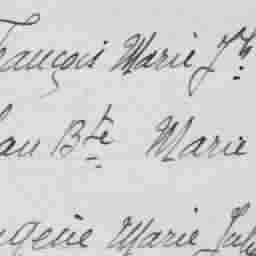 François Marie Jh.
Jean Bte Marie
Eugène Marie Jule